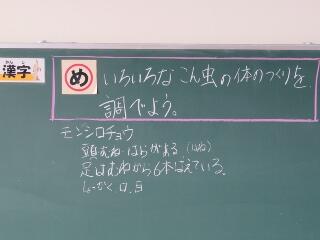 かんじ
漢字
め
いろいろなこん虫の体のつくりを
調べよう。
モンシロチョウ
頭、むね、はらがある
足はむねから6本はえている。
しょっかく、口、目